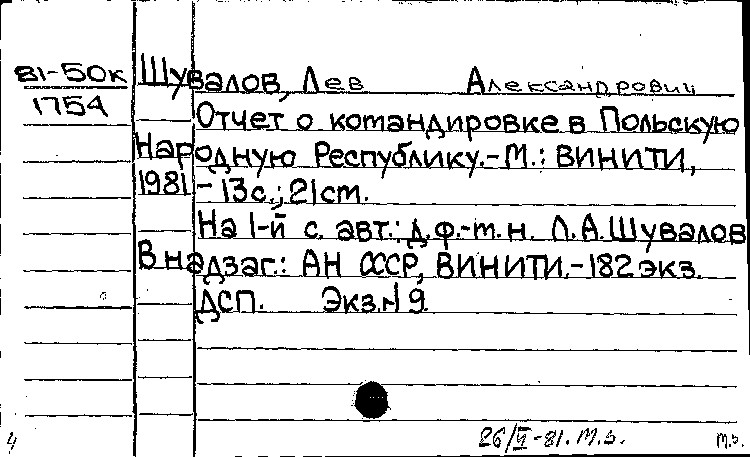 81-50к Шувалов, Лев Александрович
1754
Отчет о командировке в Польскую
Народную Республику.-М.: ВИНИТИ,
1981 - 13с.; 21см.
На 1-й с. авт.: д.ф.-м.н. Л.А.Шувалов
В надзаг.: АН СССР, ВИНИТИ.-182экз.
ДСП. Экз.N 9.
4 26/V-81. М.З. м.з.